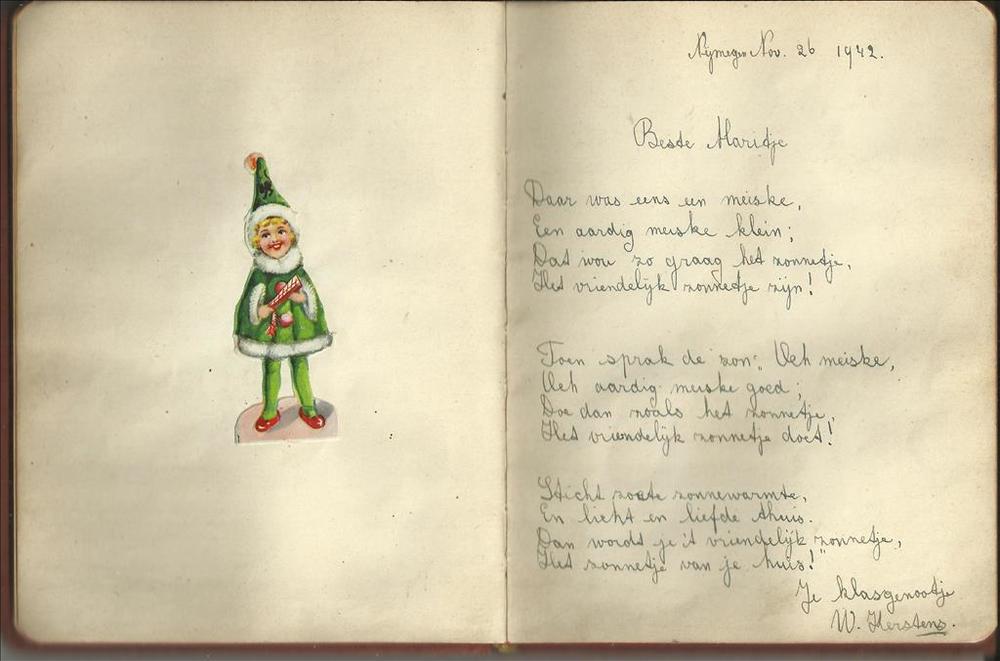 Nijmegen Nov. 26 1942.
Beste Marietje
Daar was eens een meiske,
Een aardig meiske klein;
Dat wou zo graag het zonnetje,
Het vriendelijk zonnetje zijn!
Toen sprak de zon: „Och meiske,
Och aardig meiske goed;
Doe dan zoals het zonnetje,
Het vriendelijk zonnetje doet!
Sticht zoete zonnewarmte,
En licht en liefde thuis.
Dan wordt je 't vriendelijk zonnetje,
Het zonnetje van je huis!"
Je klasgenootje
W. Kerstens.